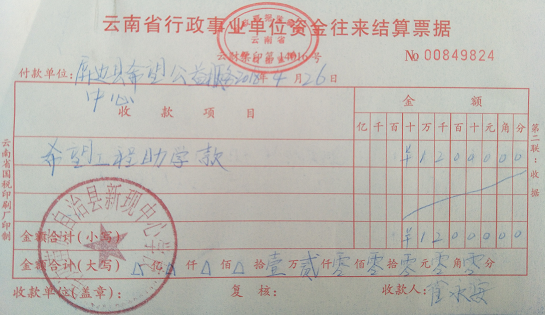 云南省行政事业单位资金往来结算票据
云南省
No 00849824
付款单位：屏边县希望公益服务 2018年4月26日
中心
收款项目 金额
亿千百十万千百十元角分
希望工程助学款 ¥12000000
金额合计（小写） ¥12000000
金额合计（大写） 仟 佰 拾壹万贰仟零佰零拾零元零角零分
收款单位（盖章）： 复核： 收款人：
自治县新现中心学
云南省国税印刷厂印制
第二联：收据